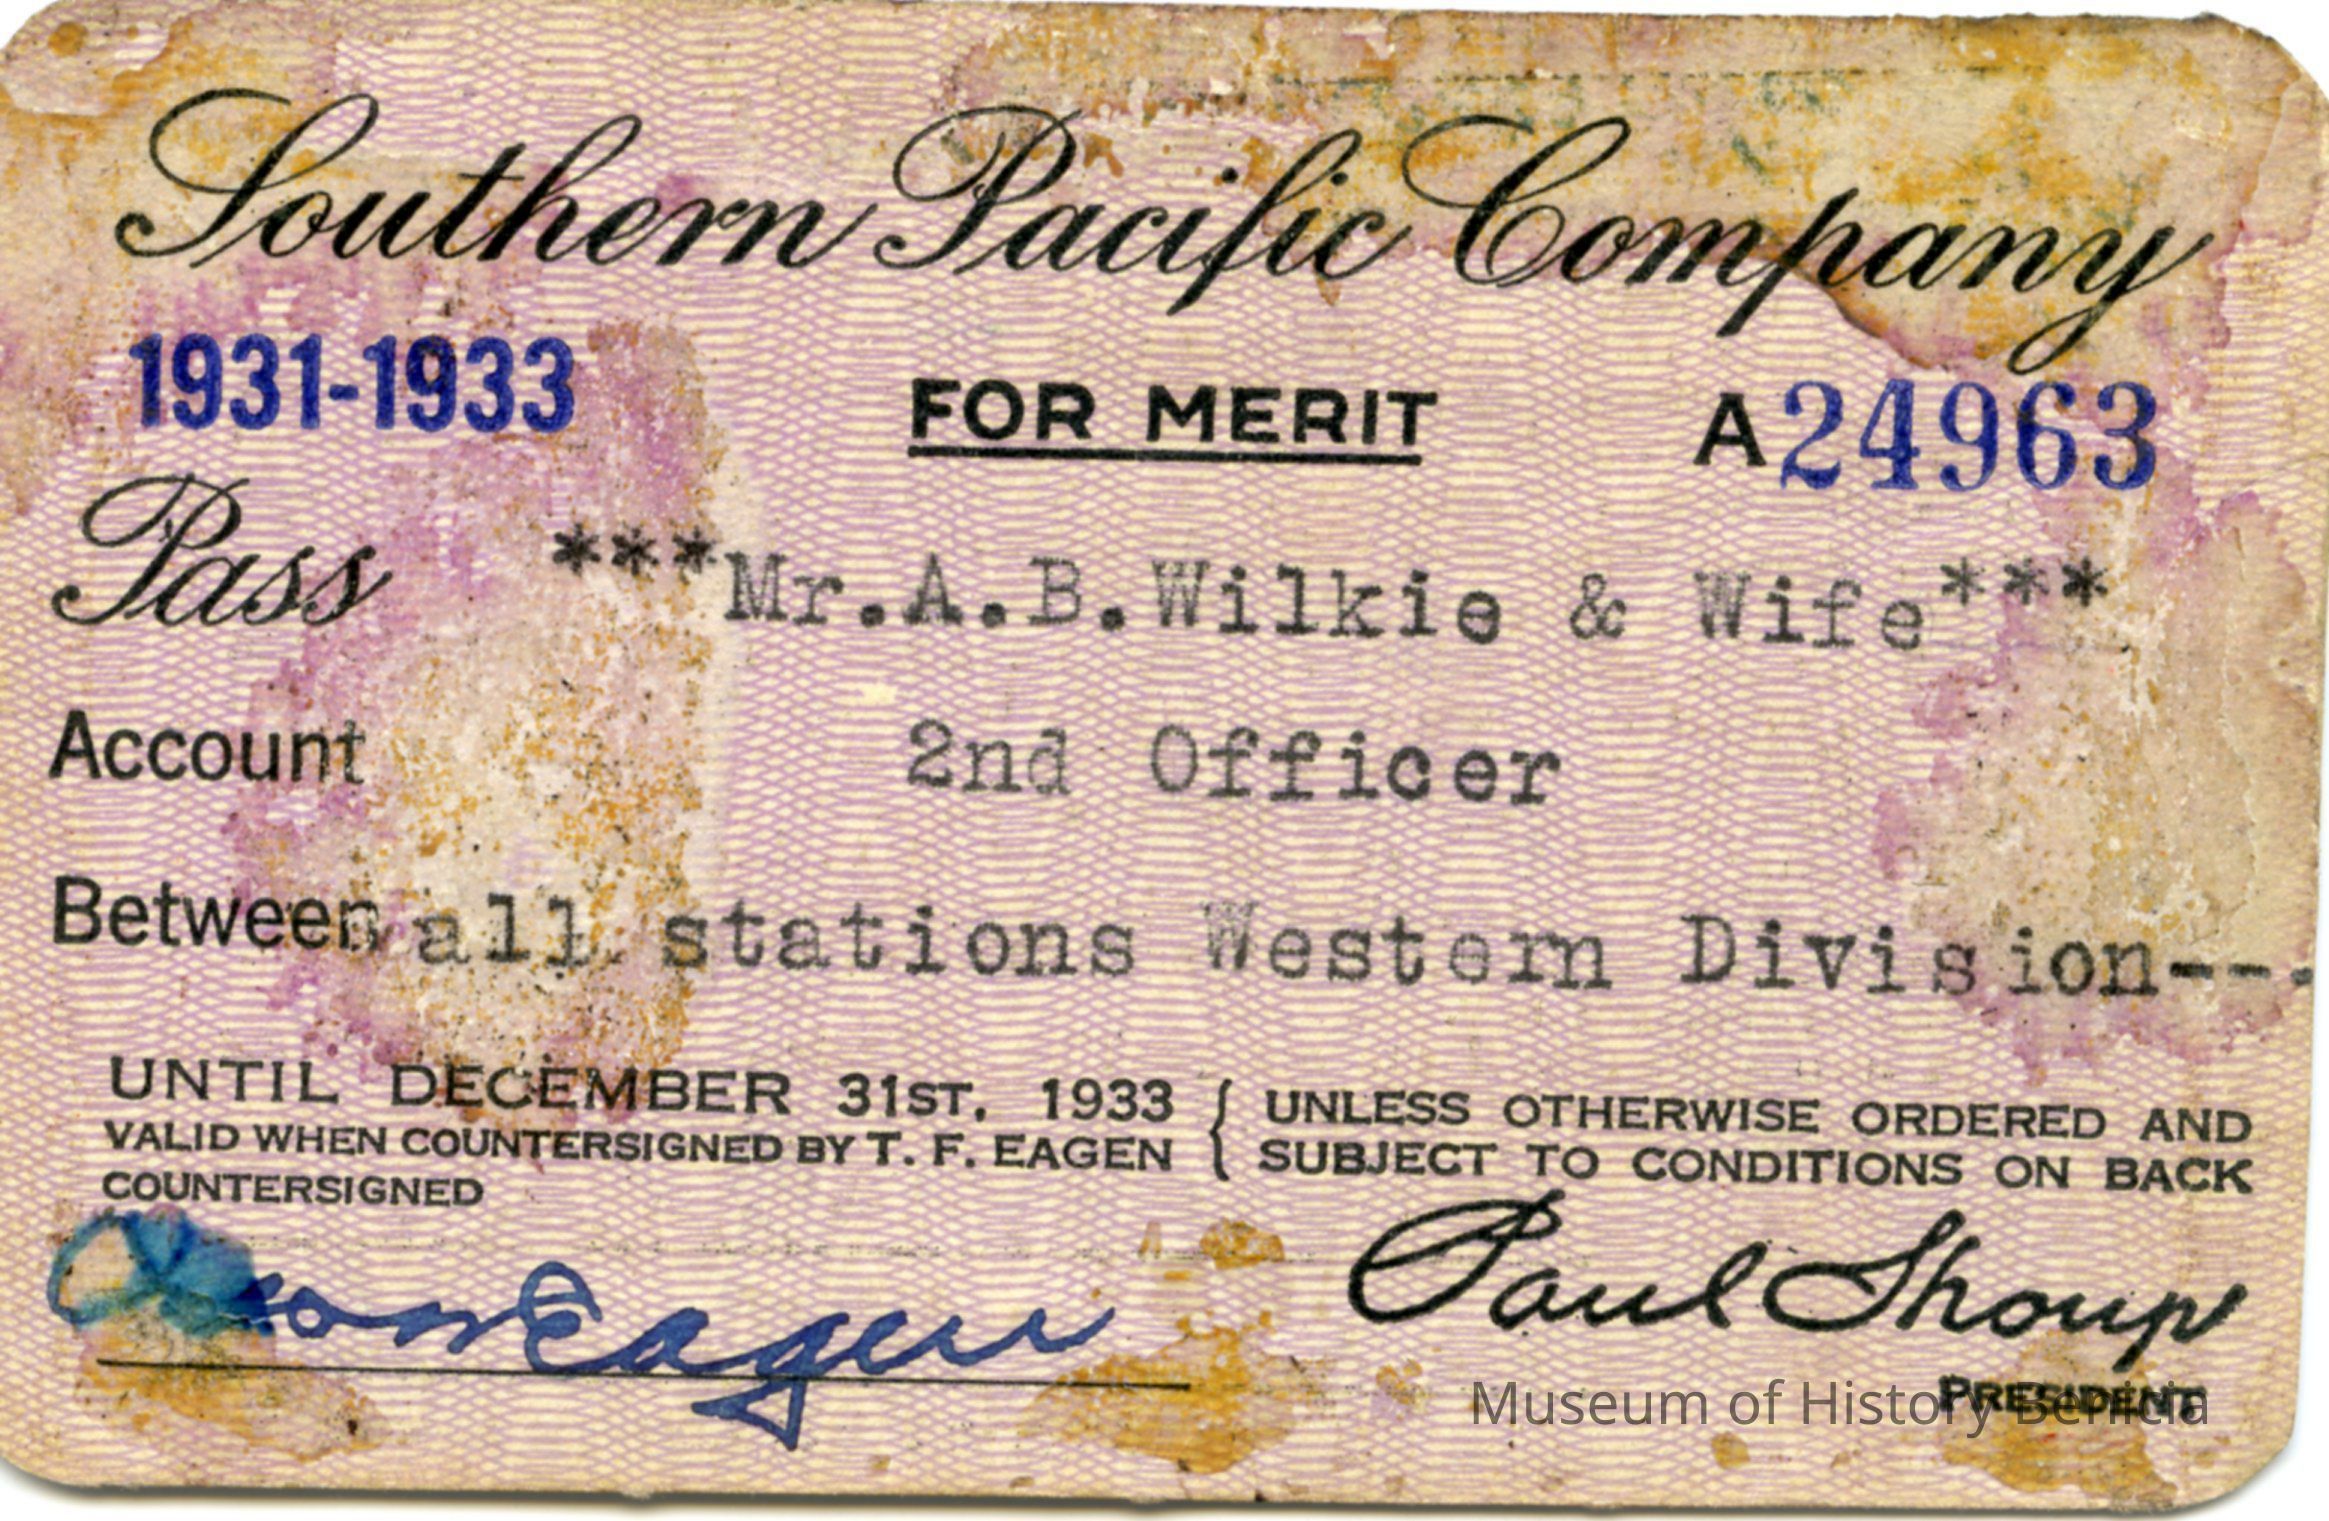 Southern Pacific Company
1931-1933
FOR MERIT
A24963
Pass ***Mr.A.B.Wilkie & Wife***
Account 2nd Officer
Between all stations Western Division---
UNTIL DECEMBER 31ST, 1933 { UNLESS OTHERWISE ORDERED AND
VALID WHEN COUNTERSIGNED BY T. F. EAGEN SUBJECT TO CONDITIONS ON BACK
COUNTERSIGNED
Eagen
Paul Shoup
PRESIDENT
Museum of History Benicia